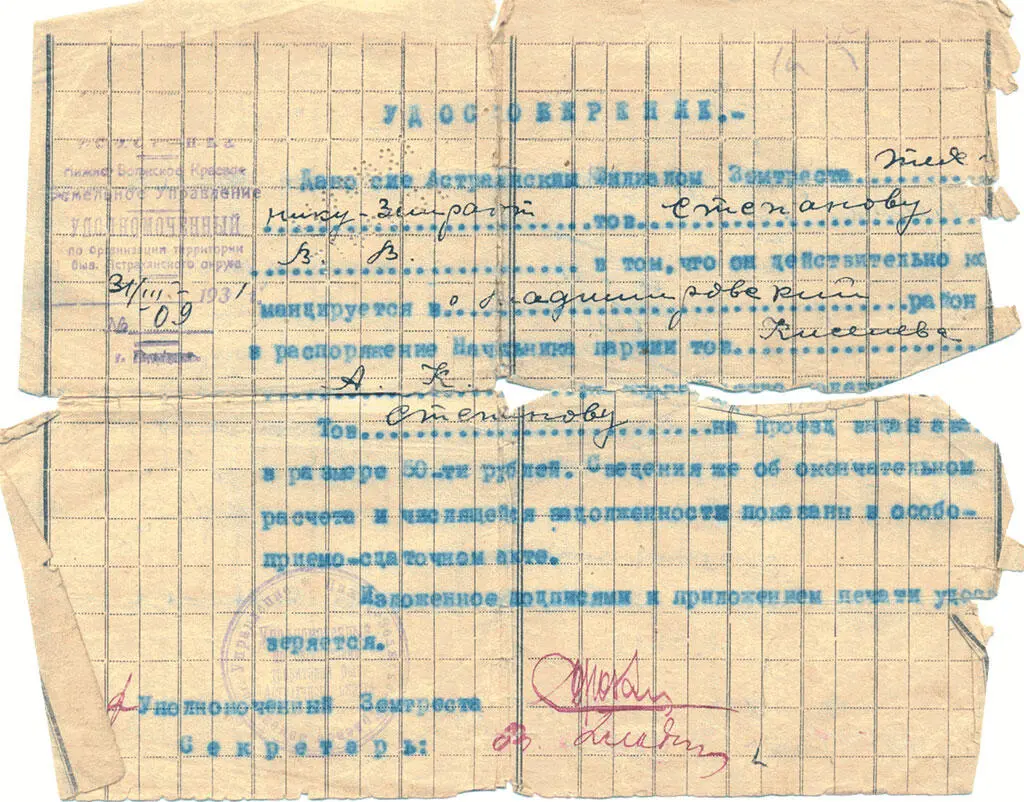 УДОСТОВЕРЕНИЕ.-
Р.С.Ф.С.Р.
Нижне-Волжское Краевое
Земельное Управление
УПОЛНОМОЧЕННЫЙ
по Организации территории
быв. Астраханского округа
31/III- 1931
№ 09
Дано сие Астраханским Филиалом Земтреста Тех-
нику-Земтраст тов. Степанову
В. В. в том, что он действительно ко
мандируется в Владимировский район
в распоряжение Начальника партии тов. Киселева
А. К.
Тов. Степанову на проезд выдан ава
в размере 50-ти рублей. Сведения же об окончательном
расчете и числящейся задолженности показаны в особо-
приемо-сдаточном акте.
Изложенное подписями и приложением печати удос
веряется.
Уполномоченный Земтреста
Секретарь: